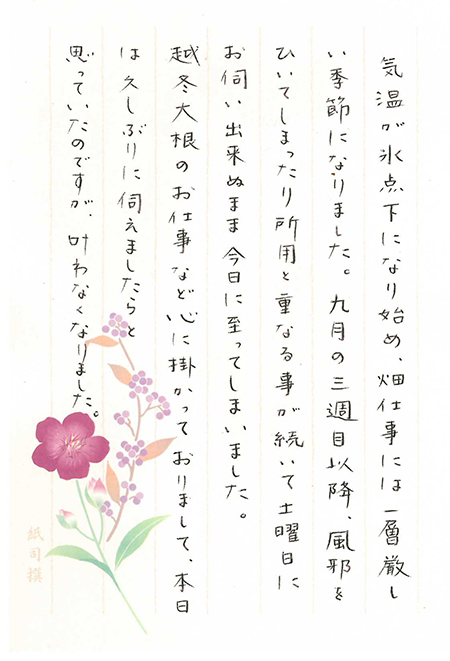 気温が氷点下になり始め、畑仕事には一層厳し
い季節になりました。九月の三週目以降、風邪を
ひいてしまったり所用と重なる事が続いて土曜日に
お伺い出来ぬまま今日に至ってしまいました。
越冬大根のお仕事など心に掛かっておりまして、本日
は久しぶりに伺えましたらと
思っていたのですが、叶わなくなりました。
紙司撰